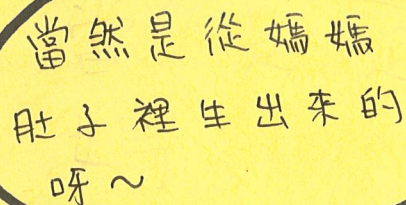 當然是從媽媽
肚子裡生出來的
呀~